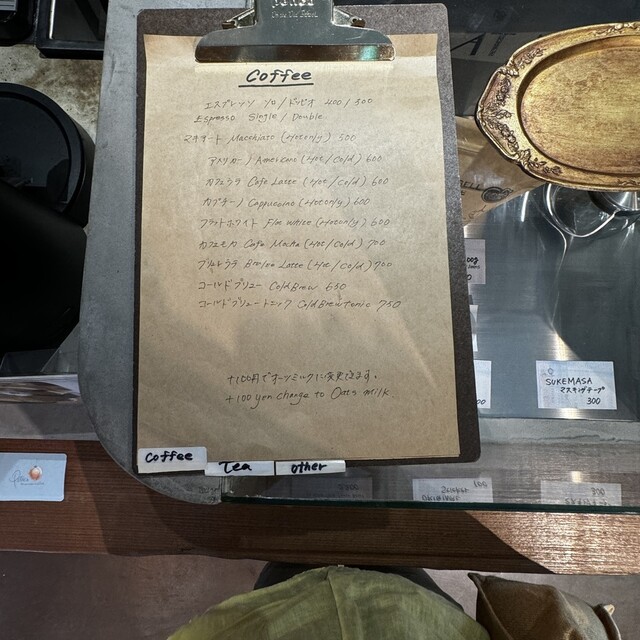 Coffee
エスプレッソ ソロ/ドッピオ 400/500
Espresso Single/Double
マキアート Macchiato (Hot only) 500
アメリカーノ Americano (Hot/Cold) 600
カフェラテ Cafe Latte (Hot/Cold) 600
カプチーノ Cappuccino (Hot only) 600
フラットホワイト Flat White (Hot only) 600
カフェモカ Cafe Mocha (Hot/Cold) 700
ブレベラテ Breve Latte (Hot/Cold) 700
コールドブリュー Cold Brew 650
コールドブリュートニック Cold Brew Tonic 750
+100円でオーツミルクに変更できます。
+100 yen change to Oats milk
Coffee
tea
other
SUKEMASA
マスキングテープ
300